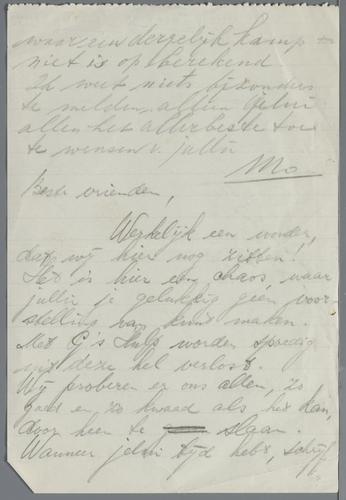 waar een dergelijk kamp
niet is op berekend
Ik weet niets bijzonders
te melden, alleen jullie
allen het allerbeste toe
te wensen v. jullie
Mo
Beste vrienden,
Werkelijk een wonder,
dat wij hier nog zitten!
Het is hier een chaos, waar
jullie je gelukkig geen voor-
stelling van kunt maken.
Met G's hulp worden spoedig
uit deze hel verlost.
Wij proberen er ons allen, zo
goed en zo kwaad als het kan,
door heen te slaan.
Wanneer jelui tijd hebt, schrijf